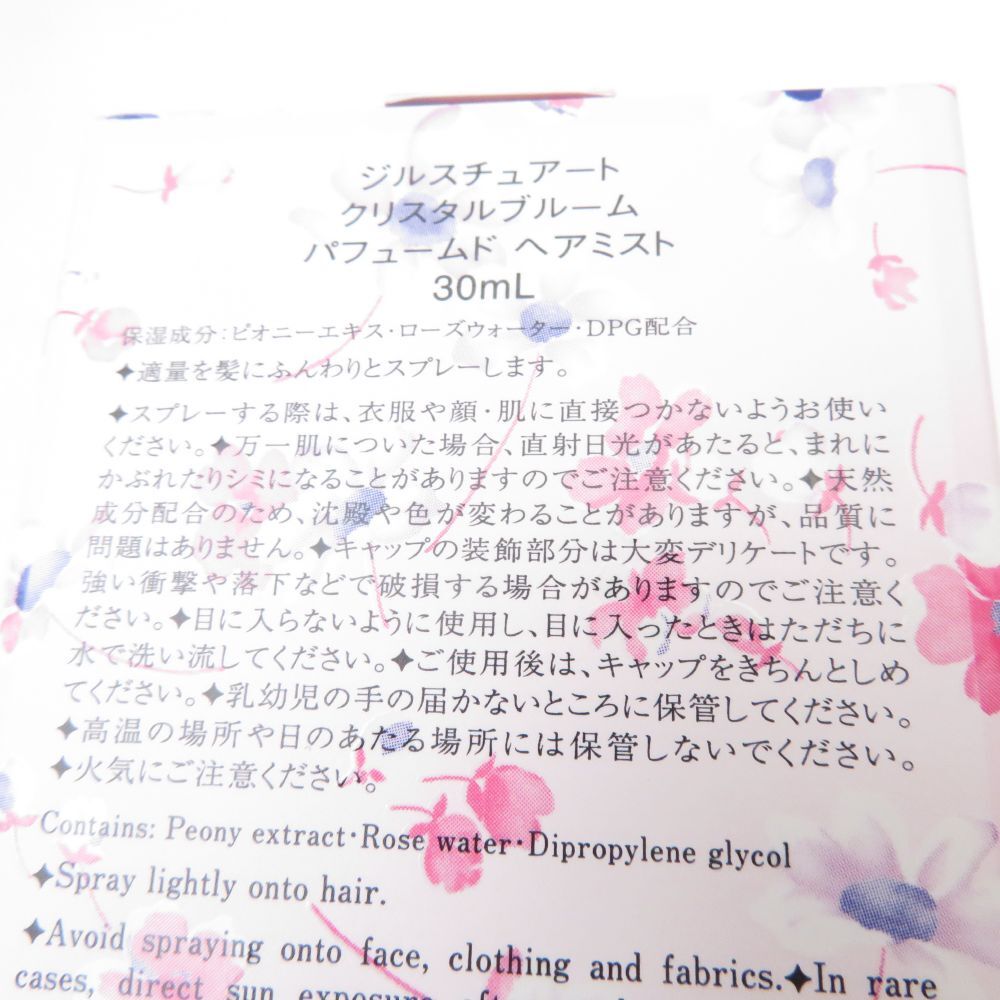 ジルスチュアート
クリスタルブルーム
パフュームド ヘアミスト
30mL
保湿成分：ピオニーエキス・ローズウォーター・DPG配合
✦適量を髪にふんわりとスプレーします。
✦スプレーする際は、衣服や顔・肌に直接つかないようお使い
ください。✦万一肌についた場合、直射日光があたると、まれに
かぶれたりシミになることがありますのでご注意ください。✦天然
成分配合のため、沈殿や色が変わることがありますが、品質に
問題はありません。✦キャップの装飾部分は大変デリケートです。
強い衝撃や落下などで破損する場合がありますのでご注意く
ださい。✦目に入らないように使用し、目に入ったときはただちに
水で洗い流してください。✦ご使用後は、キャップをきちんとしめ
てください。✦乳幼児の手の届かないところに保管してください。
✦高温の場所や日のあたる場所には保管しないでください。
✦火気にご注意ください。
Contains: Peony extract・Rose water・Dipropylene glycol
✦Spray lightly onto hair.
✦Avoid spraying onto face, clothing and fabrics.✦In rare
cases, direct sun exposure